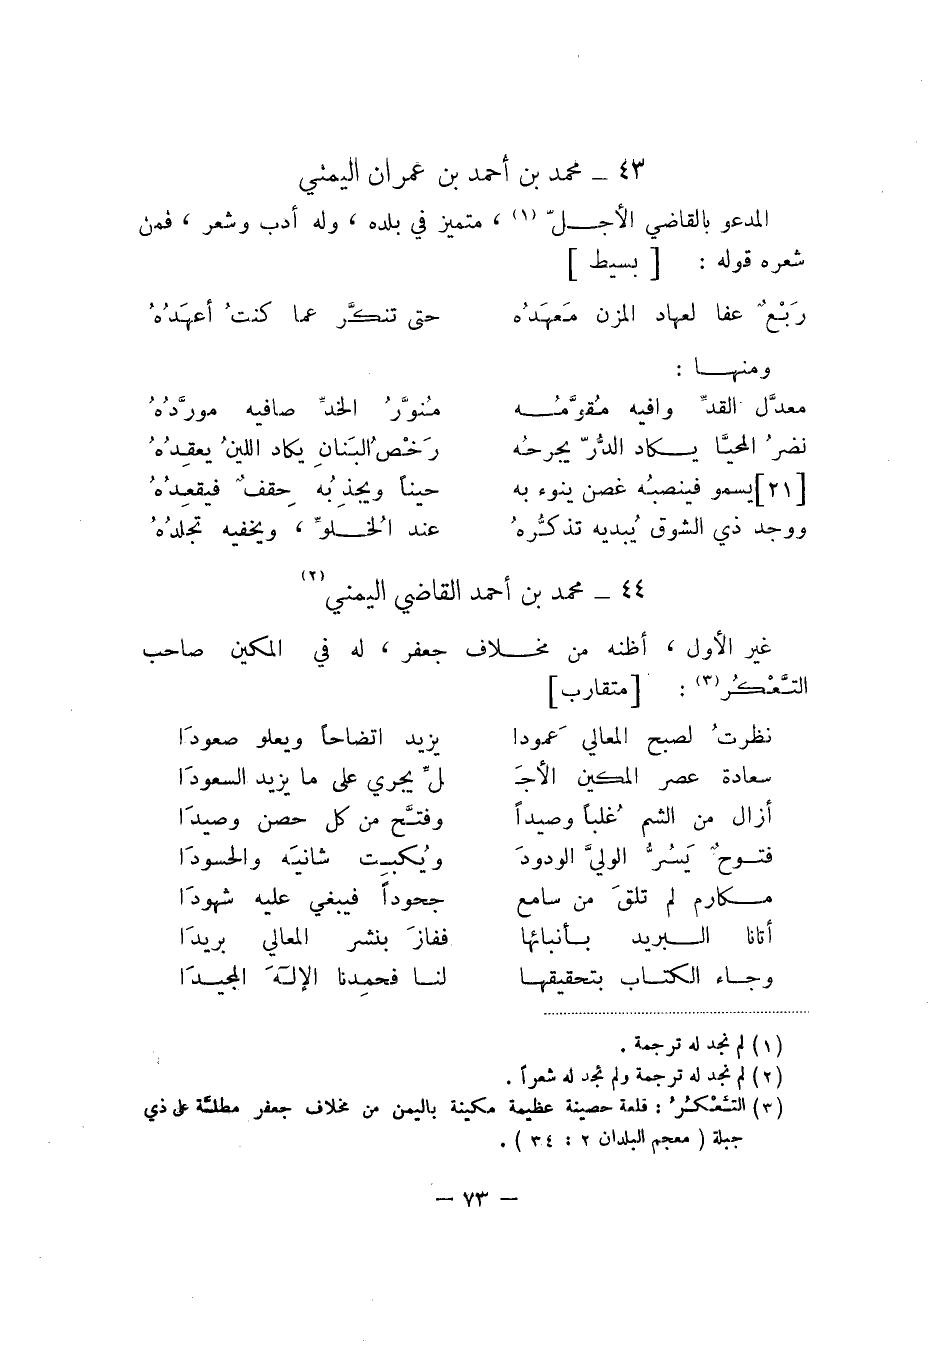 ٤٣ ــ محمد بن أحمد بن عمران اليمني
المدعو بالقاضي الأجــــل (١) ، متميز في بلده ، وله أدب وشعر ، فمن
شعره قوله : [ بسيط ]
رَبْعٌ عفا لعهاد المزن مَعهَدُه حتى تنكَّر عما كنتُ أعهَدُهُ
ومنهــــا :
معدَّل القدِّ وافيه مُقوَّمُـــه مُنوَّرُ الخدِّ صافيه مورَّدُهُ
نضرُ المحيَّا يــكاد الدُّرّ يجرحُه رَخْصُ البَنانِ يكاد اللينُ يعقِدُهُ
[٢١] يسمو فينصبُه غصن ينوء به حيناً ويجذِبُه حِقفٌ فيقعِدُهُ
ووجد ذي الشوق يُبديه تذكُّرهُ عند الخُلــوِّ ، ويخفيه تجلدُهُ
٤٤ ــ محمد بن أحمد القاضي اليمني (٢)
غير الأول ، أظنه من مخــــلاف جعفر ، له في المكين صاحب
التَّعْكُر (٣) : [متقارب]
نظرتُ لصبح المعالي عَمودا يزيد اتضاحاً ويعلو صعودَا
سعادة عصر المكين الأجَـ لِّ يجري على ما يزيد السعودَا
أزال من الشم غُلباً وصيداً وفتَّح من كل حصن وصيدَا
فتــوحٌ يَسُرُّ الوليَّ الودودَ ويُكبِت شانيَه والحسودَا
مــكارم لم تلقَ من سامع جحوداً فيبغي عليه شهودَا
أتانا البــــريد بــأنبائها ففازَ بنشر المعالي بريدَا
وجــاء الكتــاب بتحقيقهــا لنــا فحمِدنا الإلَـهَ المجيــدَا
(١) لم نجد له ترجمة .
(٢) لم نجد له ترجمة ولم نجد له شعراً .
(٣) التَّعْكُرُ : قلعة حصينة عظيمة مكينة باليمن من مخلاف جعفر مطلَّة على ذي
جبلة ( معجم البلدان ٢ : ٣٤ ) .
— ٧٣ —